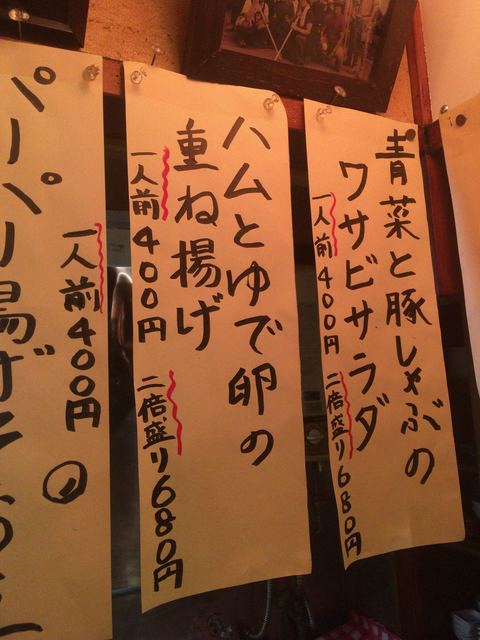 青菜と豚しゃぶの
ワサビサラダ
一人前400円 二倍盛り680円
ハムとゆで卵の
重ね揚げ
一人前400円 二倍盛り680円
一人前400円
パーパリ揚げ